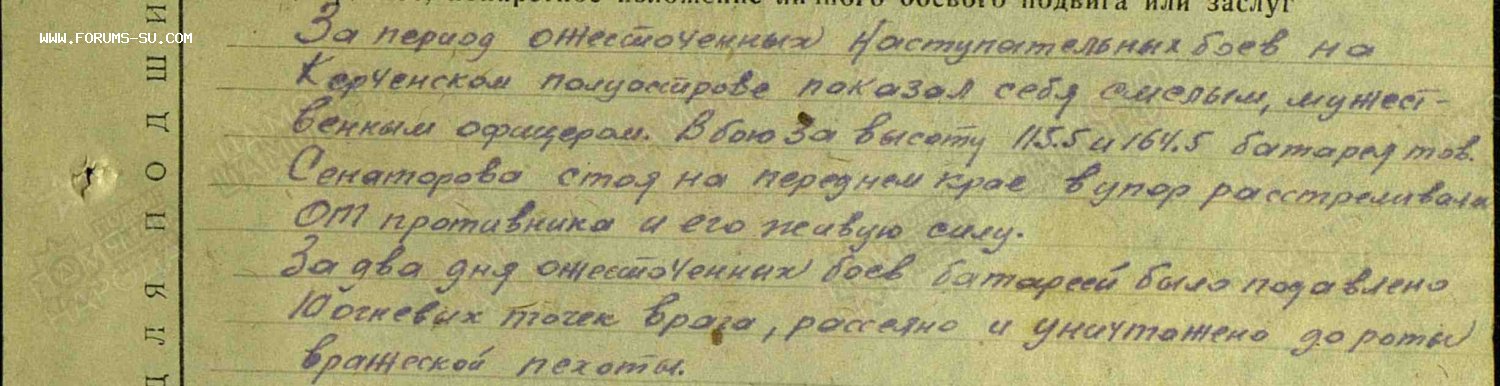 конкретное изложение личного боевого подвига или заслуг
WWW.FORUMS-SU.COM
За период ожесточенных наступательных боев на
Керченском полуострове показал себя смелым, мужест-
венным офицером. В бою за высоту 115.5 и 164.5 батарея тов.
Сенаторова стоя на переднем крае в упор расстреливала
ОТ противника и его живую силу.
За два дня ожесточенных боев батареей было подавлено
10 огневых точек врага, рассеяно и уничтожено до роты
вражеской пехоты.
ДЛЯ ПОДШИ